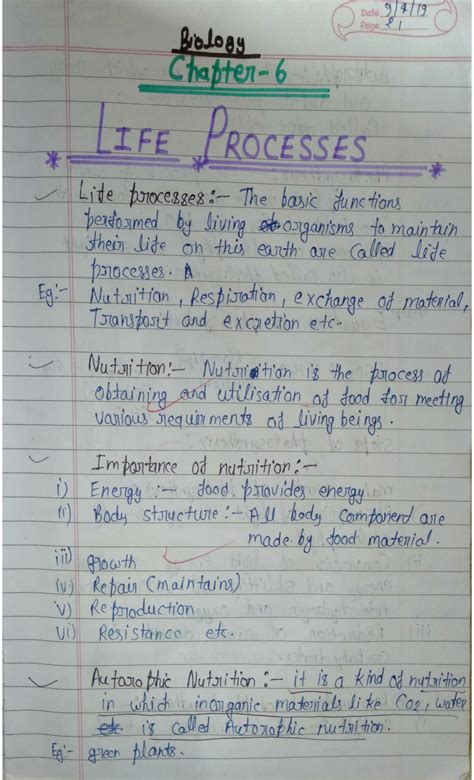 Date 9/4/19
Page 21
Biology
Chapter-6
LIFE PROCESSES
Life processes:- The basic functions
performed by living organisms to maintain
their life on this earth are called life
processes.
Eg:- Nutrition, Respiration, exchange of material,
Transport and excretion etc.
Nutrition:- Nutrition is the process of
obtaining and utilisation of food for meeting
various requirments of living beings.
Importance of nutrition:-
i) Energy :- food provides energy
ii) Body structure:- All body component are
made by food material.
iii) growth
iv) Repair (maintains)
v) Reproduction
vi) Resistance etc.
Autorophic Nutrition:- it is a kind of nutrition
in which inorganic materials like CO2, water
etc is called Autorophic nutrition.
Eg:- green plants.